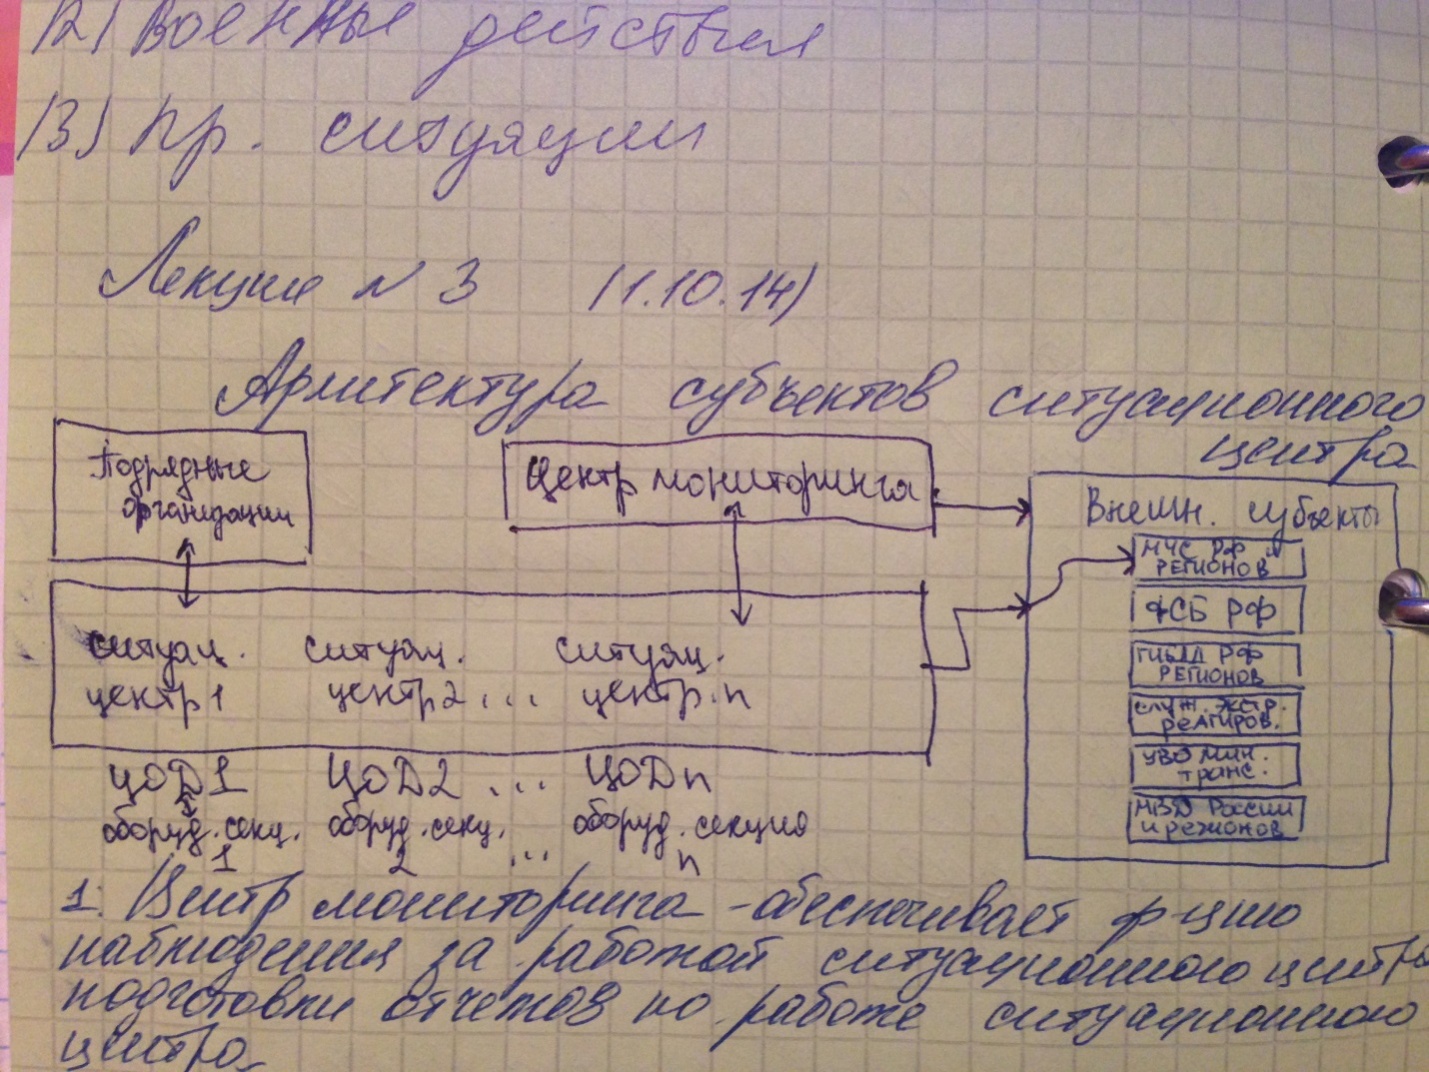 12) Военные действия
13) пр. ситуации
Лекция № 3 (1.10.14)
Архитектура субъектов ситуационного
центра
Подрядные
организации
Центр мониторинга
Внешн. субъекты
МЧС РФ и
РЕГИОНОВ
ФСБ РФ
ГИБДД РФ
РЕГИОНОВ
служ. экстр.
реагиров.
УВО мин.
транс.
МВД России
и регионов
ситуац. ситуяц. ситуяц.
центр 1 центр 2 ... центр. n
ЦОД 1 ЦОД 2 ... ЦОД n
оборуд. секц. оборуд. секц. оборуд. секция
1 2 ... n
1. Центр мониторинга - обеспечивает ф-цию
наблюдения за работой ситуационного центра
подготовки отчетов по работе ситуационного
центра